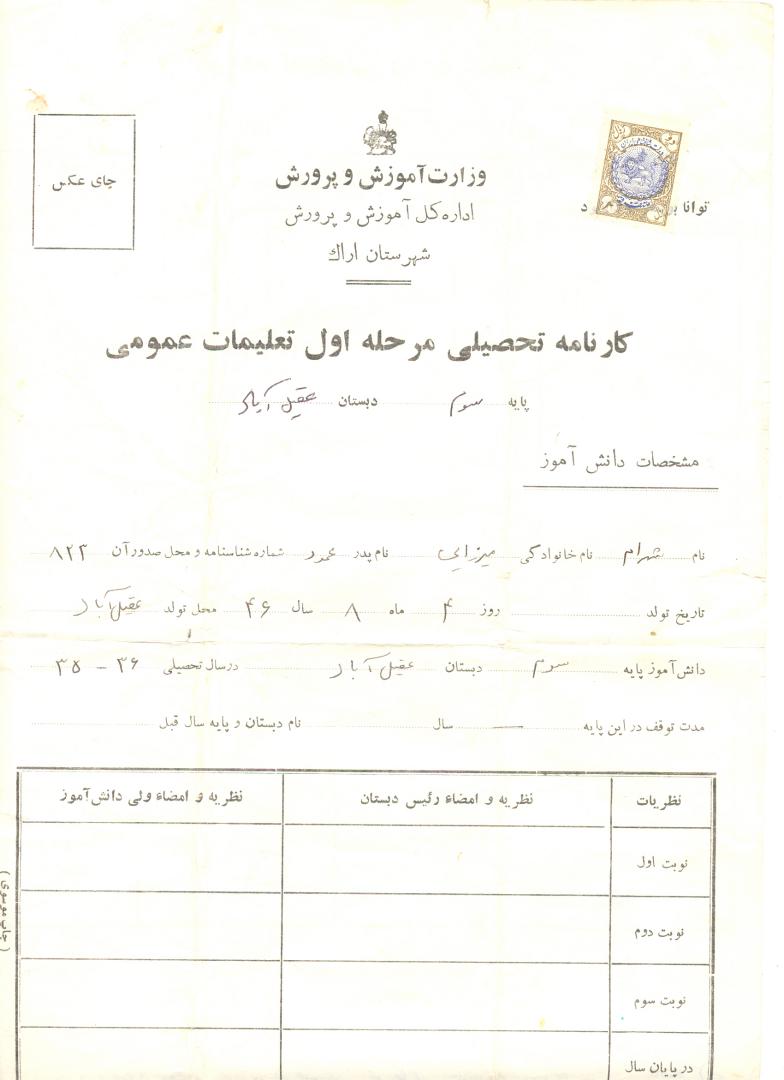 توانا بو د
جای عکس
وزارت آموزش و پرورش
اداره کل آموزش و پرورش
شهرستان اراك
کارنامه تحصیلی مرحله اول تعلیمات عمومی
پایه سوم دبستان عقیل آباد
مشخصات دانش آموز
نام شهرام نام خانوادگی میرزایی نام پدر شماره شناسنامه و محل صدور آن ۸۲۳
تاریخ تولد روز ۴ ماه ۸ سال ۴۶ محل تولد عقیل آباد
دانش آموز پایه سوم دبستان عقیل آباد در سال تحصیلی ۳۶ - ۳۵
مدت توقف در این پایه — سال نام دبستان و پایه سال قبل
نظریات نظریه و امضاء رئیس دبستان نظریه و امضاء ولی دانش آموز
نوبت اول
نوبت دوم
نوبت سوم
در پایان سال
( چاپ موسوی )